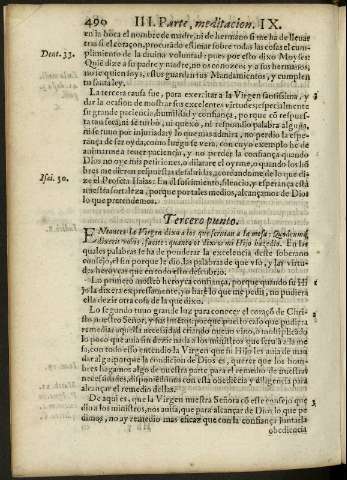 490 III. Parte, meditacion. IX.
en la boca el nombre de madre, ni de hermano si me ha de lleuar
tras si el coraçon, procurādo estimar sobre todas las cosas el cum-
plimiento de la diuina voluntad: pues por esto dixo Moyses:
Deut. 33.
Quiē dize a su padre y madre, no os conozco: y a sus hermanos,
no se quien soys, estos guardan tus Mandamientos, y cumplen
tu santa ley.
La tercera causa fue, para exercitar a la Virgen santissima, y
3
dar la ocasion de mostrar sus excelentes virtudes, especialmente
su grande paciencia, humildad y confiança, porque cō respues-
ta tan seca, ni se turbó, ni quexò, ni respondio palabra alguna,
ni se tuuo por injuriada y lo que mas admira, no perdio la espe-
rança de ser oyda, como luego se verá, con cuyo exemplo he de
animarme a tener paciencia, y no perder la confiança quando
Dios no oye mis peticiones, o dilatare el oyrme, o quando los hō-
bres me dieren respuestas desabridas, acordandome de lo que
dixo el Profeta Isaias: En el sufrimiento, silencio, y esperança està
Isai. 30.
nuestra fortaleza, porque por tales medios, alcançamos de Dios
lo que pretendemos.
Tercero punto.
ENtonces la Virgen dixo a los que seruian a la mesa: Quodcunq
dixerit vobis, facite: quanto os dixere mi Hijo hazedlo. En las
quales palabras se ha de ponderar la excelencia deste soberano
consejo, el fin porque le dio, las palabras de que vsò, y las virtu-
des heroycas que en todo esto descubrio.
Lo primero
1
jo la dixera expressamente, yo harè lo que me pedis, no pudiera
ella dezir otra cosa de la que dixo.
Lo segundo tuuo grande luz para conocer el coraçō de Chris-
2
to nuestro Señor, y sus intentos: porque puesto caso que pudiera
remediar aquella necesidad criando nueuo vino, o multiplicādo
lo poco que auia sin dezir nada a los ministros que seruiā a la me-
sa, con todo esso entendio la Virgen que su Hijo les auia de man-
dar algo, porque la condicion de Dios es, querer que los hom-
bres hagamos algo de nuestra parte para el remedio de nuestras
necesidades, disponiendonos con esta obediēcia y diligencia para
alcançar el remedio dellas.
De aqui es, que la Virgen nuestra Señora cō este consejo que
3
dio a los ministros, nos auisa, que para alcançar de Dios lo que pe-
dimos, no ay remedio mas eficaz que con la confiança juntar la
obediencia